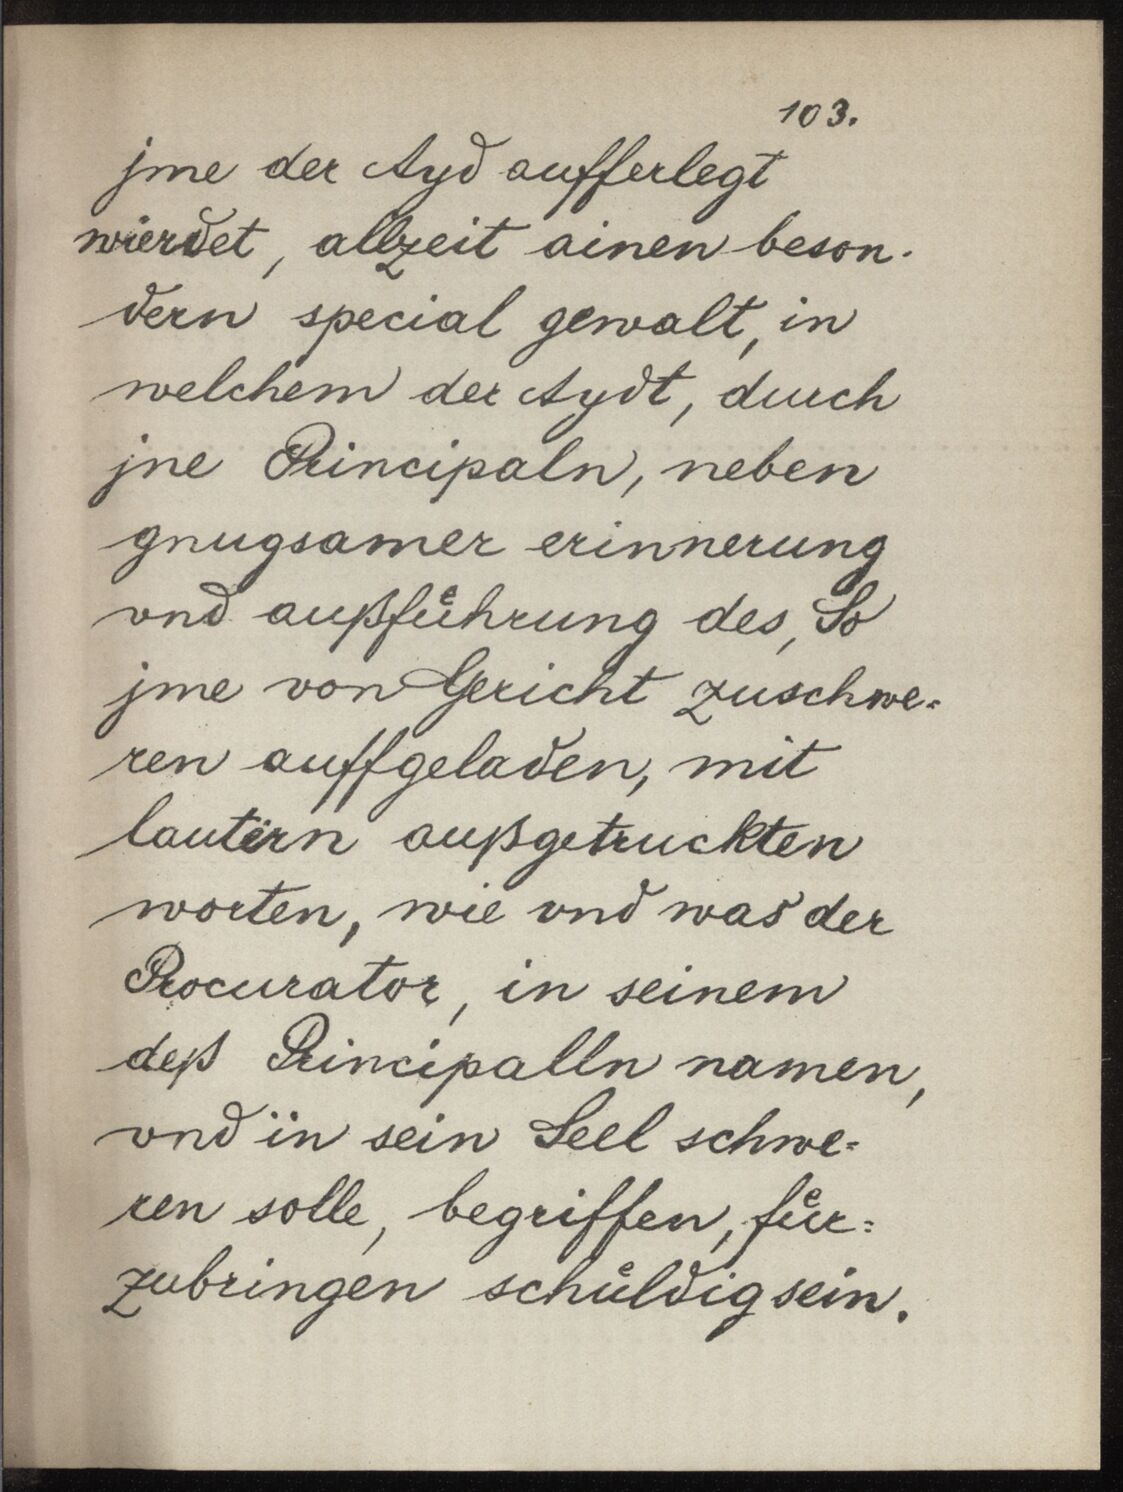 103.
jme der Ayd aufferlegt
wierdet, allzeit ainen beson-
dern special gewalt, in
welchem der Aydt, durch
jne Principaln, neben
gnugsamer erinnerung
vnd außfuͤhrung des, So
jme von Gericht zuschwe=
ren auffgeladen, mit
lautërn außgetruckten
worten, wie vnd was der
Procurator, in seinem
deß Principalln namen,
vnd in sein Seel schwe=
ren solle, begriffen, fuͤr=
zubringen schůldig sein.